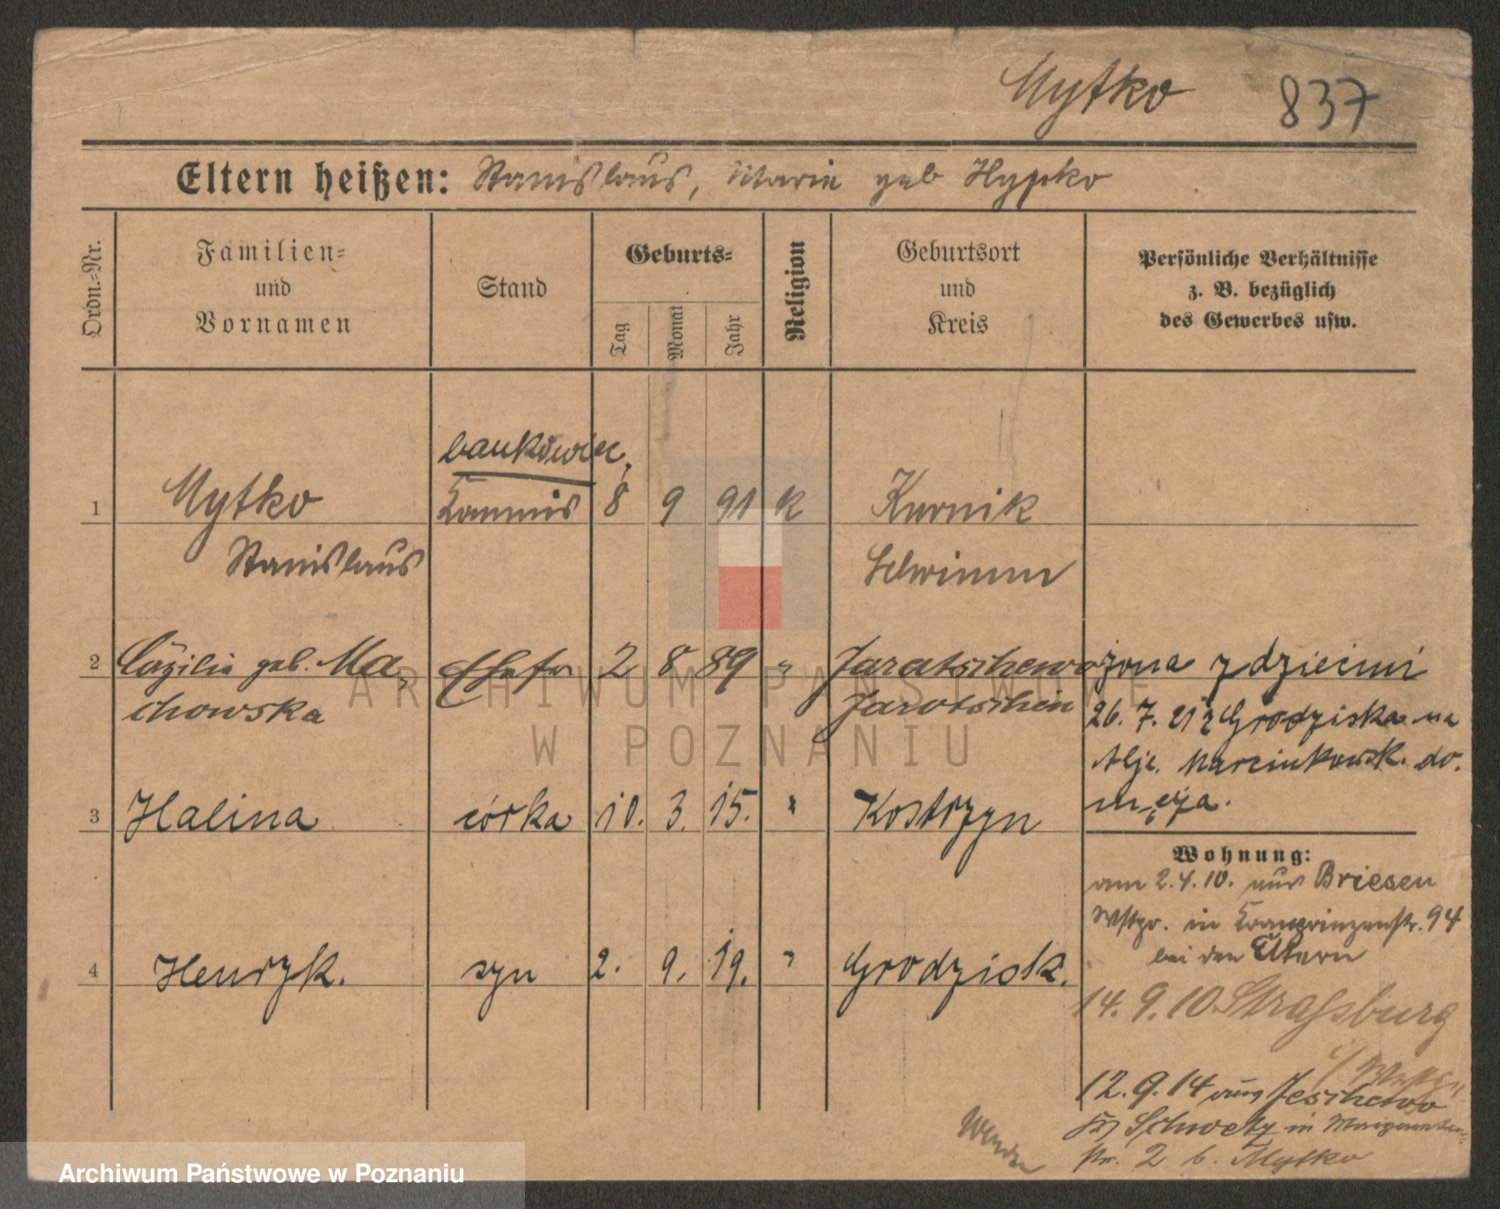 Mytko 837
Eltern heißen: Stanislaus, Marie geb Hypko
Ordn.-Nr.
Familien-
und
Vornamen
Stand
Geburts-
Tag
Monat
Jahr
Religion
Geburtsort
und
Kreis
Persönliche Verhältnisse
z. B. bezüglich
des Gewerbes usw.
bankowiec
1 Mytko Kommis 8 9 91 k Kurnik
Stanislaus Schrimm
2 Cäzilie geb. Ma- Ehefr 2 8 89 " Jaratschewo żona z dziećmi
chowska Jarotschin 26. 7. 21 z Grodziska na
Alje. Marcinkowsk. do
męża.
3 Halina córka 10. 3. 15. " Kostrzyn
Wohnung:
am 2.4.10. aus Briesen
Wstpr. in Kronprinzenstr. 94
4 Henryk. syn 2. 9. 19. " Grodzisk.
bei den Eltern
14. 9. 10 Strassburg
i/ Wstpr.
12. 9. 14 aus Jeschewo
Kr Schwetz in
str. 2 b. Mytko
Wenden
ARCHIWUM PAŃSTWOWE
W POZNANIU
Archiwum Państwowe w Poznaniu